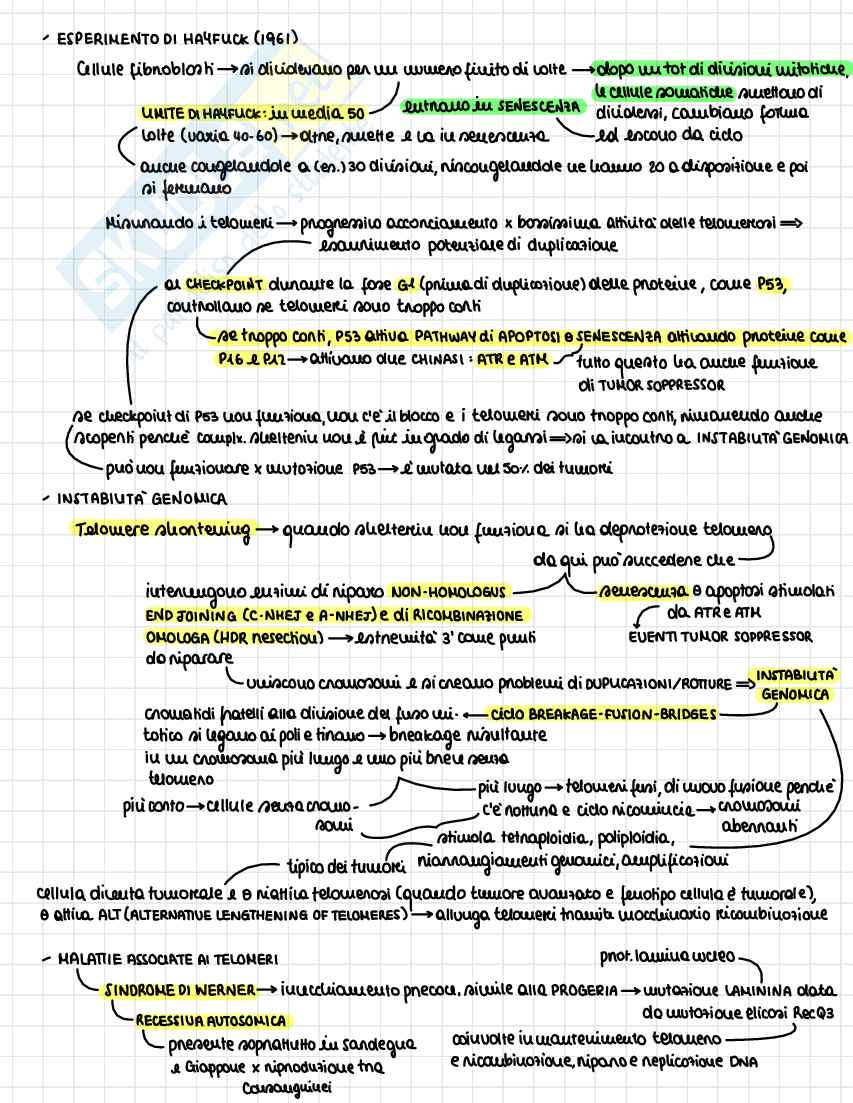 ✓ ESPERIMENTO DI HAYFLICK (1961)
Cellule fibroblasti → si dividevano per un numero finito di volte → dopo un tot di divisioni mitotiche,
le cellule somatiche smettono di
LIMITE DI HAYFLICK: in media 50
entrano in SENESCENZA
dividersi, cambiano forma
volte (varia 40-60) → oltre, smette e va in senescenza
ed escono da ciclo
anche congelandole a (es.) 30 divisioni, riscongelandole ne hanno 20 a disposizione e poi
si fermano
Misurando i telomeri → progressivo accorciamento x bassissima attività delle telomerasi ⇒
esaurimento potenziale di duplicazione
ai CHECKPOINT durante la fase G1 (prima di duplicazione) delle proteine, come P53,
controllano se telomeri sono troppo corti
se troppo corti, P53 attiva PATHWAY di APOPTOSI o SENESCENZA attivando proteine come
P16 e P12 → attivano due CHINASI: ATR e ATM
tutto questo ha anche funzione
di TUMOR SOPPRESSOR
se checkpoint di P53 non funziona, non c'è il blocco e i telomeri sono troppo corti, rimanendo anche
scoperti perché complx. shelterin non è più in grado di legarsi ⇒ si va incontro a INSTABILITÀ GENOMICA
può non funzionare x mutazione P53 → è mutata nel 50% dei tumori
✓ INSTABILITÀ GENOMICA
Telomere shortening → quando shelterin non funziona si ha deprotezione telomero
da qui può succedere che
intervengono enzimi di riparo NON-HOMOLOGUS
senescenza o apoptosi stimolati
END JOINING (C-NHEJ e A-NHEJ) e di RICOMBINAZIONE
da ATR e ATM
OMOLOGA (HDR resection) → estremità 3' come punti
EVENTI TUMOR SOPPRESSOR
da riparare
uniscono cromosomi e si creano problemi di DUPLICAZIONI/ROTTURE ⇒ INSTABILITÀ
GENOMICA
cromatidi fratelli alla divisione del fuso mi- ← ciclo BREAKAGE-FUSION-BRIDGES
totico si legano ai poli e tirano → breakage risultante
in un cromosoma più lungo e uno più breve senza
telomero
più lungo → telomeri fusi, di nuovo fusione perché
più corto → cellule senza cromo-
somi
c'è rottura e ciclo ricomincia → cromosomi
aberranti
stimola tetraploidia, poliploidia,
tipico dei tumori
riarrangiamenti genomici, amplificazioni
cellula diventa tumorale e o riattiva telomerasi (quando tumore avanzato e fenotipo cellula è tumorale),
o attiva ALT (ALTERNATIVE LENGTHENING OF TELOMERES) → allunga telomeri tramite macchinario ricombinazione
✓ MALATTIE ASSOCIATE AI TELOMERI
prot. lamina nucleo
SINDROME DI WERNER → invecchiamento precoce, simile alla PROGERIA → mutazione LAMININA data
da mutazione elicasi RecQ3
RECESSIVA AUTOSOMICA
presente soprattutto in Sardegna
e Giappone x riproduzione tra
consanguinei
coinvolte in mantenimento telomero
e ricombinazione, riparo e replicazione DNA
SKUOLA.net
il paradiso dello studente